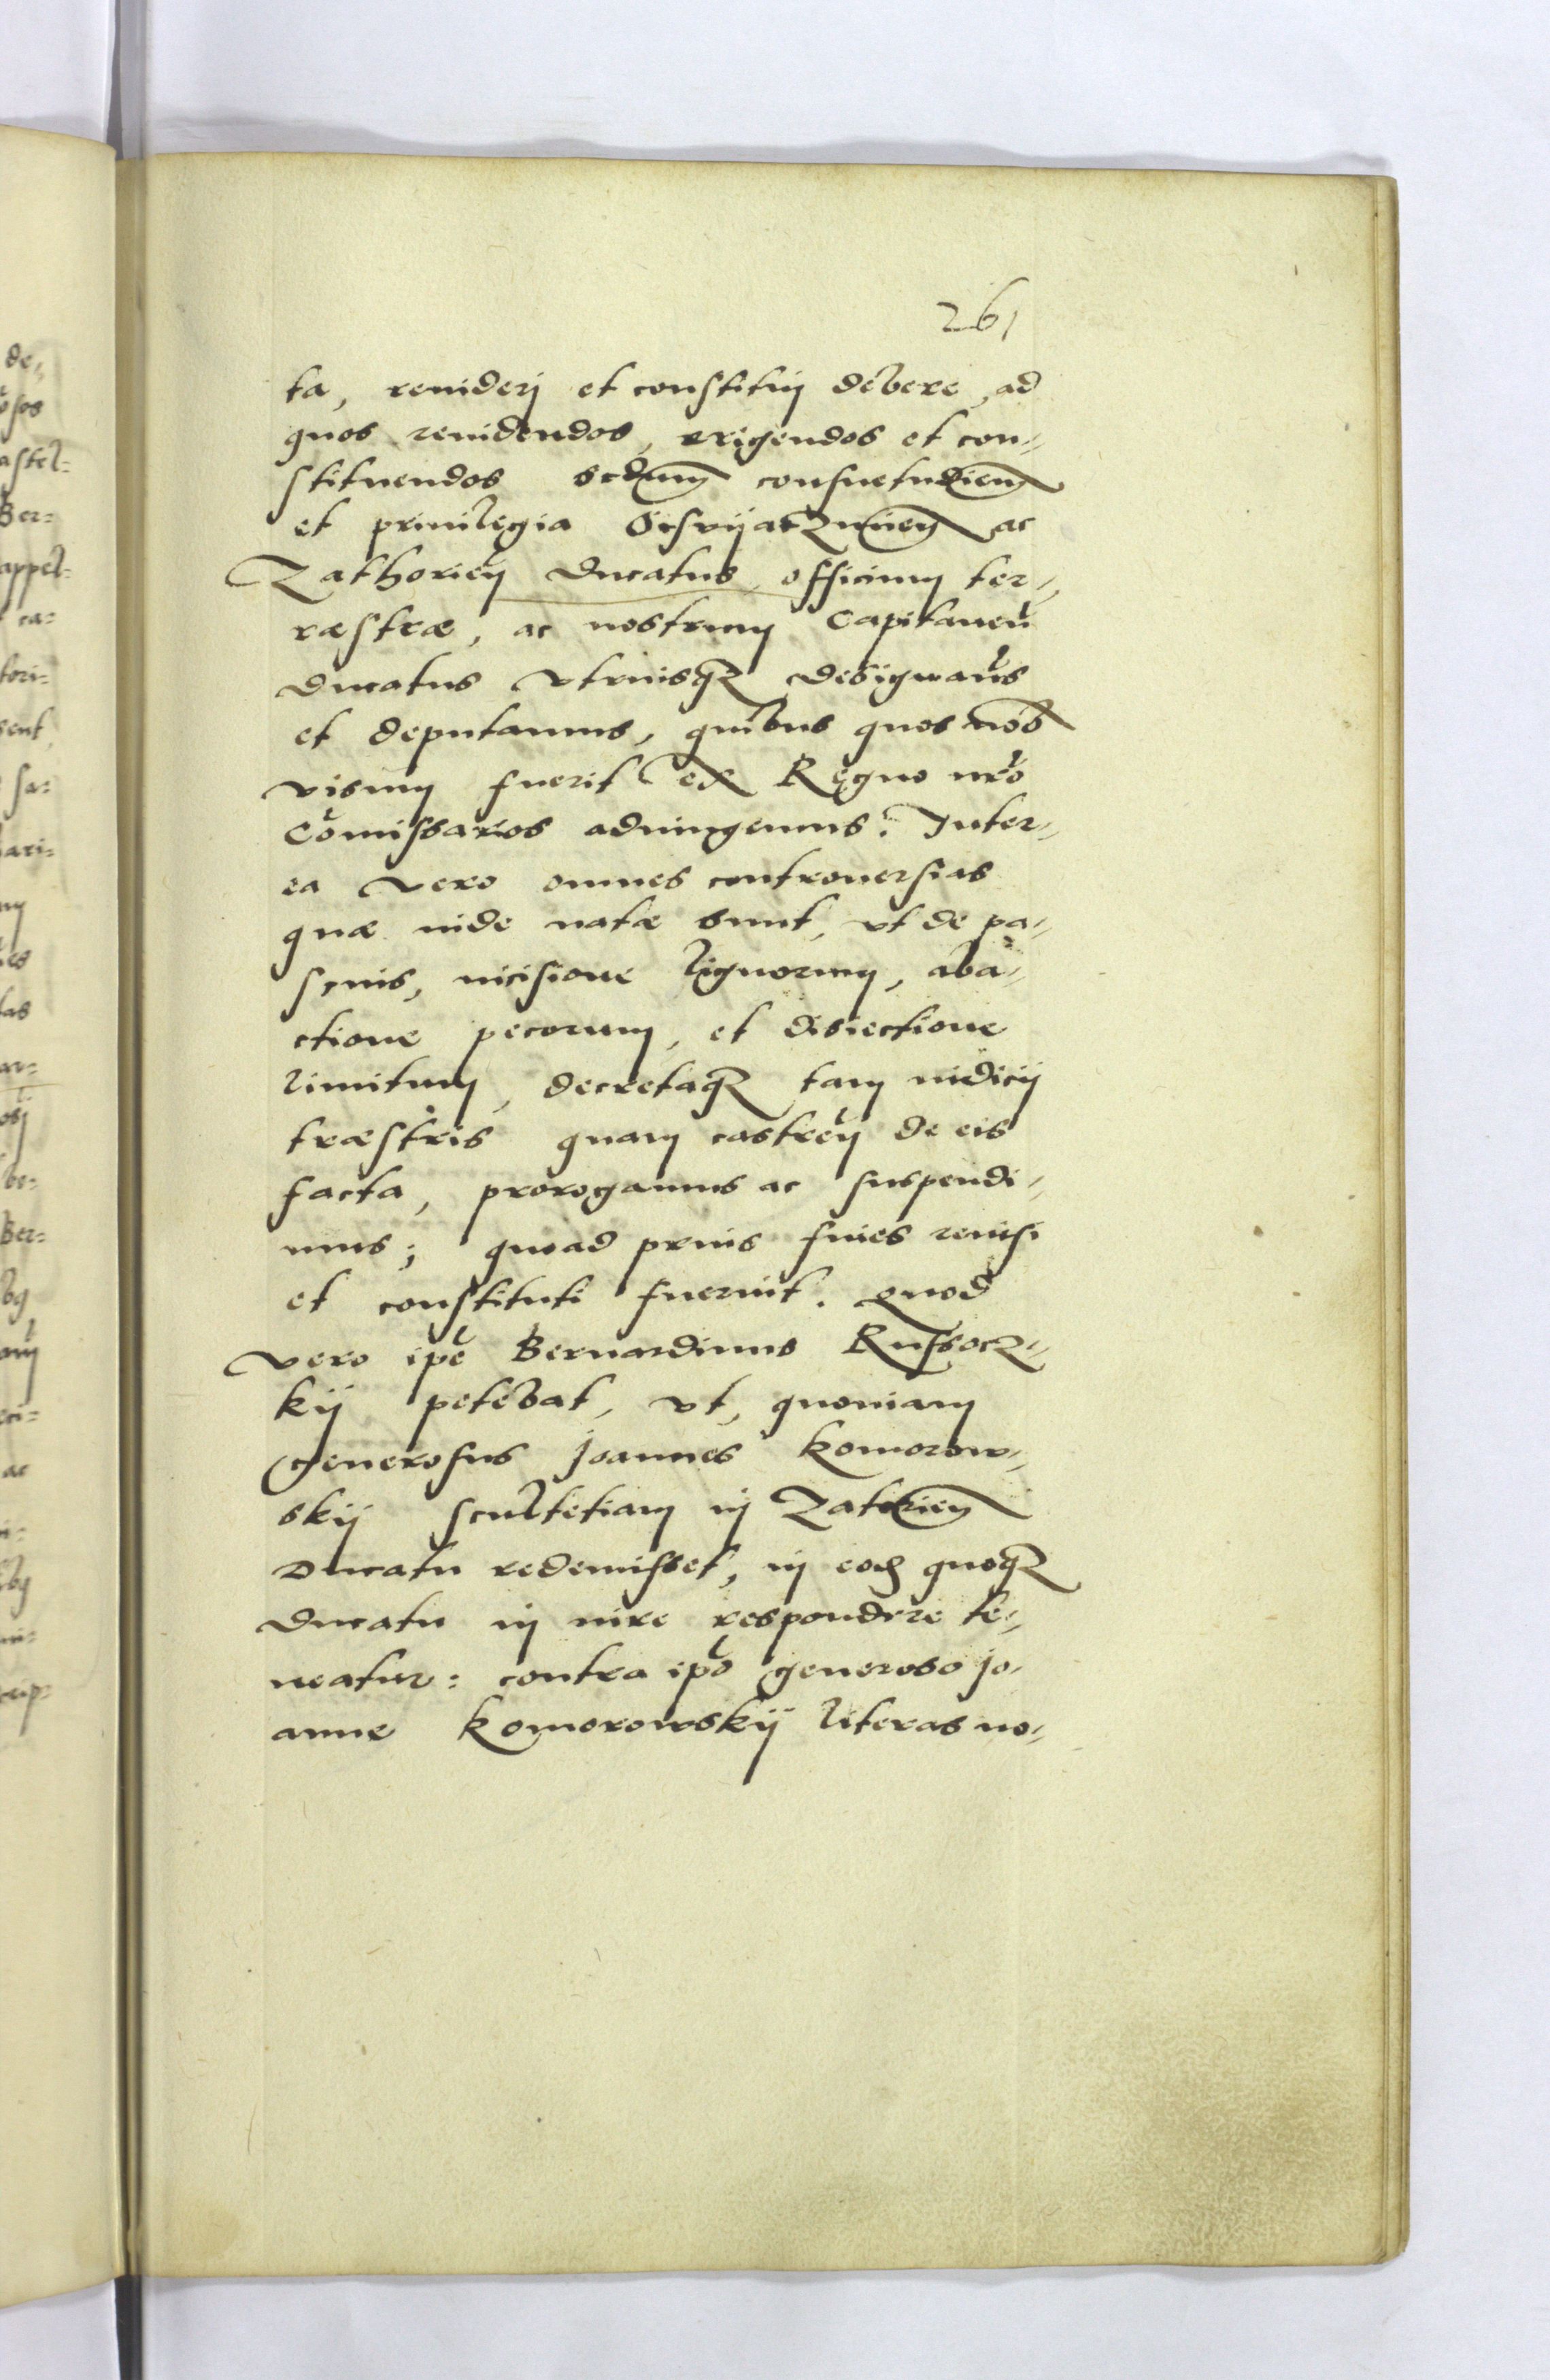 261
ta, reuiderj et constituj debere, ad
quos reuidendos, erigendos et con-
stituendos scdum consuetudiem
et priuilegia Osvijatzimien ac
Zathorien ducatus, officium ter-
ræstræ, ac nostrum Capitaneu
ducatus vtriusq3 designaus
et deputamus, quibus quos nos
visum fuerit ex Regno nro
Comissarios adiungemus. Inter-
ea vero omnes controuersias
quæ inde natæ sunt, vt de pa-
scuis, incisione lignorum, aba-
ctione pecorum, et disiectione
limitum, decretaq3 tam iudicij
træstris quam castren de eis
facta, prorogamus ac suspendi-
mus; quoad prius fines reuisi
et constituti fuerint. Quod
vero ipe Bernardinus Russocz-
kij petebat, vt, quoniam
generosus Joannes Komorow-
skij scultetiam in Zatorien
Ducatu redemisset, in eod quoq3
ducatu in iure respondere te-
neatur: contra ipo generoso Jo-
anne Komorowskij literas no-